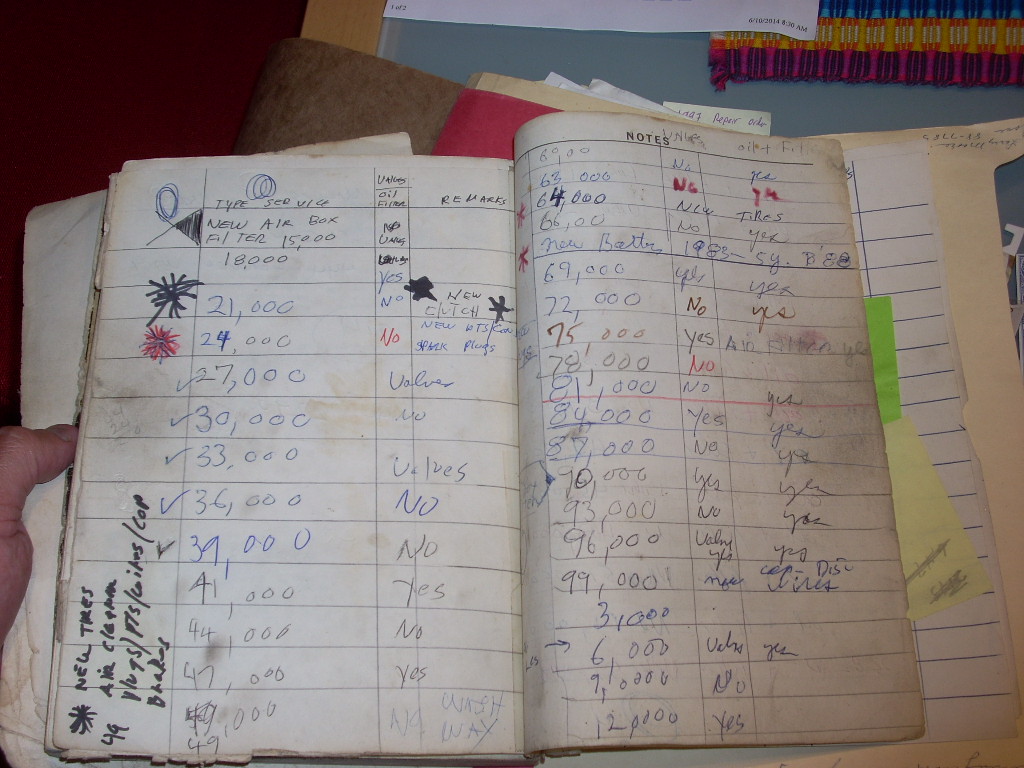 1 of 2
6/10/2014 8:30 AM
Repair order
TYPE SERVICE VALVES OIL FILTER REMARKS
NEW AIR BOX
FILTER 15,000 NO
18,000
Yes
21,000 NO NEW CLUTCH
24,000 No NEW PTS/CON
SPARK Plugs
27,000 Valves
30,000 No
33,000 Values
36,000 NO
39,000 NO
41,000 Yes
44,000 No
47,000 yes
49,000 NO WASH WAX
49
NEW TIRES
Air CLEANER
Plugs/PTS/Wires/CON
Brakes
49
NOTES VALVES oil + Filter
60,00 No yes
63,000 No yes
64,000 New Tires
66,00 No yes
New Battry 1983 - 5y. 8'88
69,000 yes yes
72,000 No yes
75,000 Yes Air Filter yes
78,000 NO
81,000 NO yes
84,000 Yes yes
87,000 No yes
90,000 yes yes
93,000 No yes
96,000 Valvs yes yes
99,000 new cap-Dis- wires
3,000
6,000 Valvs yes
9,0000 No
120000 Yes